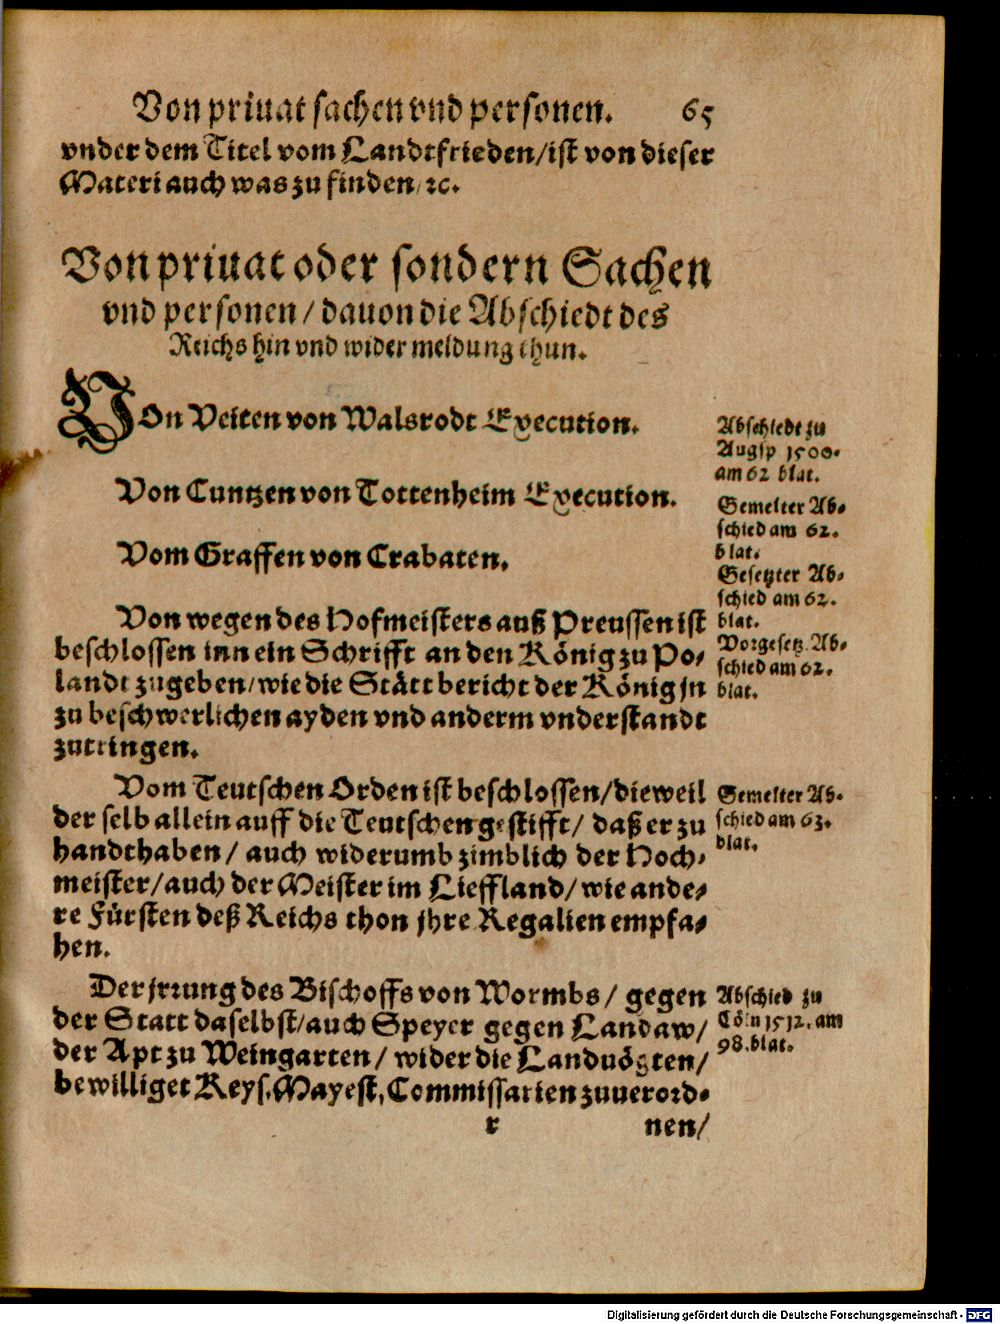 Von priuat sachen vnd personen. 65
vnder dem Titel vom Landtfrieden/ist von dieser
Materi auch was zu finden/ ꝛc.
Von priuat oder sondern Sachen
vnd personen/ dauon die Abschiedt des
Reichs hin vnd wider meldung thun.
VOn Veiten von Walsrodt Execution.
Abschiedt zu
Augsp 1500.
am 62 blat.
Von Cuntzen von Tottenheim Execution.
Gemelter Ab-
schied am 62.
blat.
Vom Graffen von Crabaten.
Gesetzter Ab-
schied am 62.
blat.
Von wegen des Hofmeisters auß Preussen ist
beschlossen inn ein Schrifft an den König zu Po-
landt zugeben/wie die Stätt bericht der König jn
zu beschwerlichen ayden vnd anderm vnderstandt
zutringen.
Vorgesetz. Ab-
schied am 62.
blat.
Vom Teutschen Orden ist beschlossen/dieweil
der selb allein auff die Teutschen gestifft/ daß er zu
handthaben/ auch widerumb zimblich der Hoch-
meister/auch der Meister im Lieffland/wie ande-
re Fürsten deß Reichs thon jhre Regalien empfa-
hen.
Gemelter Ab-
schied am 63.
blat.
Der jrrung des Bischoffs von Wormbs/ gegen
der Statt daselbst/auch Speyer gegen Landaw/
der Apt zu Weingarten/ wider die Landuögten/
bewilliget Keys. Mayest, Commissarien zuuerord-
Abschied zu
Cöln 1512. am
98. blat.
r nen/
Digitalisierung gefördert durch die Deutsche Forschungsgemeinschaft - DFG